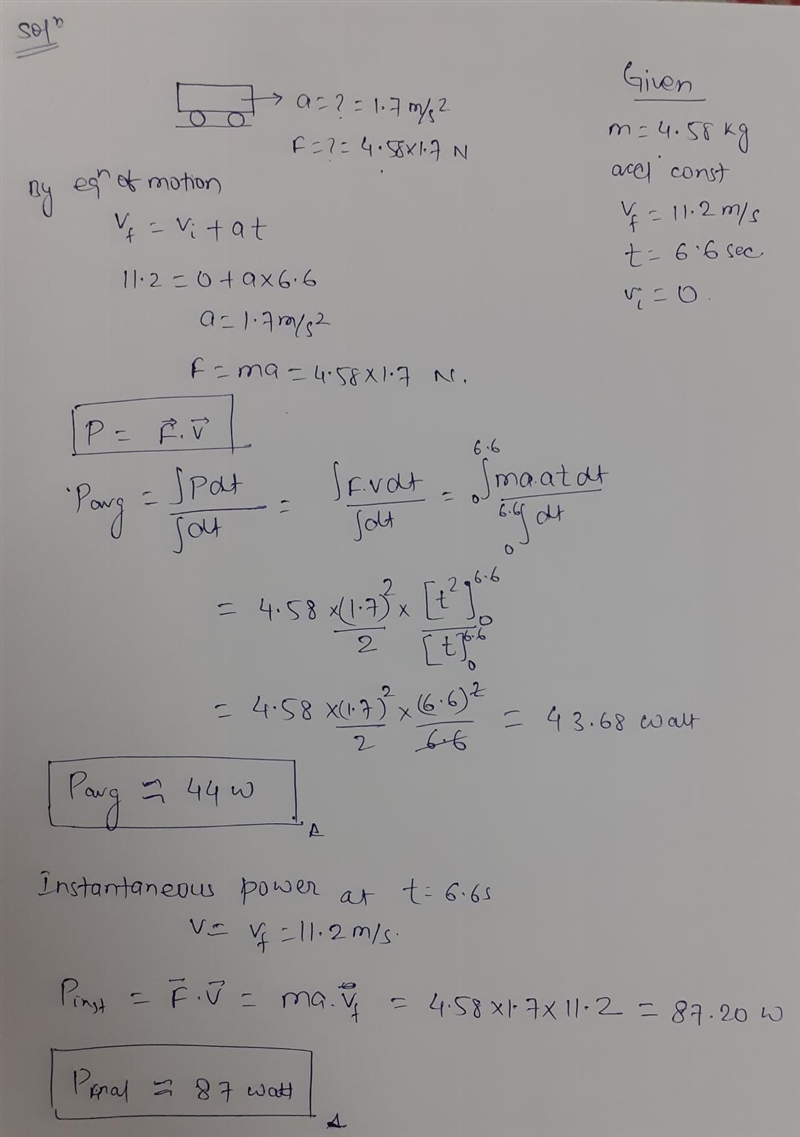 Solⁿ
Given
a = ? = 1.7 m/s²
F = ? = 4.58×1.7 N
m = 4.58 kg
accⁿ const
V_f = 11.2 m/s
t = 6.6 sec
v_i = 0.
By eqⁿ of motion
V_f = V_i + at
11.2 = 0 + a×6.6
a = 1.7 m/s²
F = ma = 4.58×1.7 N.
P = F⃗.V⃗
Pavg = ∫Pdt / ∫dt = ∫F.vdt / ∫dt = ₀∫^6.6 ma.at dt / ₀∫^6.6 dt
= 4.58 × (1.7)²/2 × [t²]₀^6.6 / [t]₀^6.6
= 4.58 × (1.7)²/2 × (6.6)²/6.6 = 43.68 watt
Pavg ≃ 44 W
A
Instantaneous power at t = 6.6s
V = V_f = 11.2 m/s.
Pinst = F⃗.V⃗ = ma.V⃗_f = 4.58×1.7×11.2 = 87.20 W
Pfinal ≃ 87 watt
A